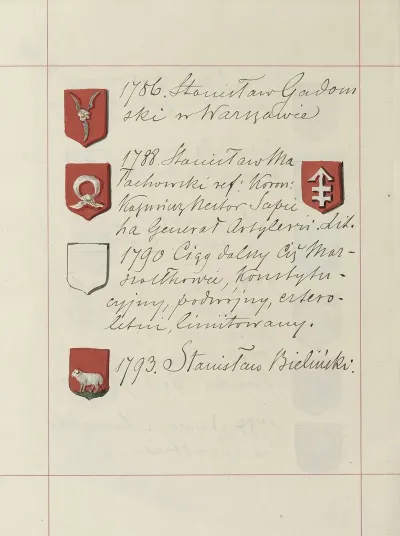 1786. Stanisław Gadom
ski w Warszawie
1788. Stanisław Ma
łachowski ref: Koron:
Kazmierz Nestor Sapie
ha Generał Artylerii Lit.
1790 Ciąg dalszy Ciż Mar-
szałkowie, Konstytu-
cyjny, podwójny, cztero-
letni, limitowany.
1793. Stanisław Bieliński.